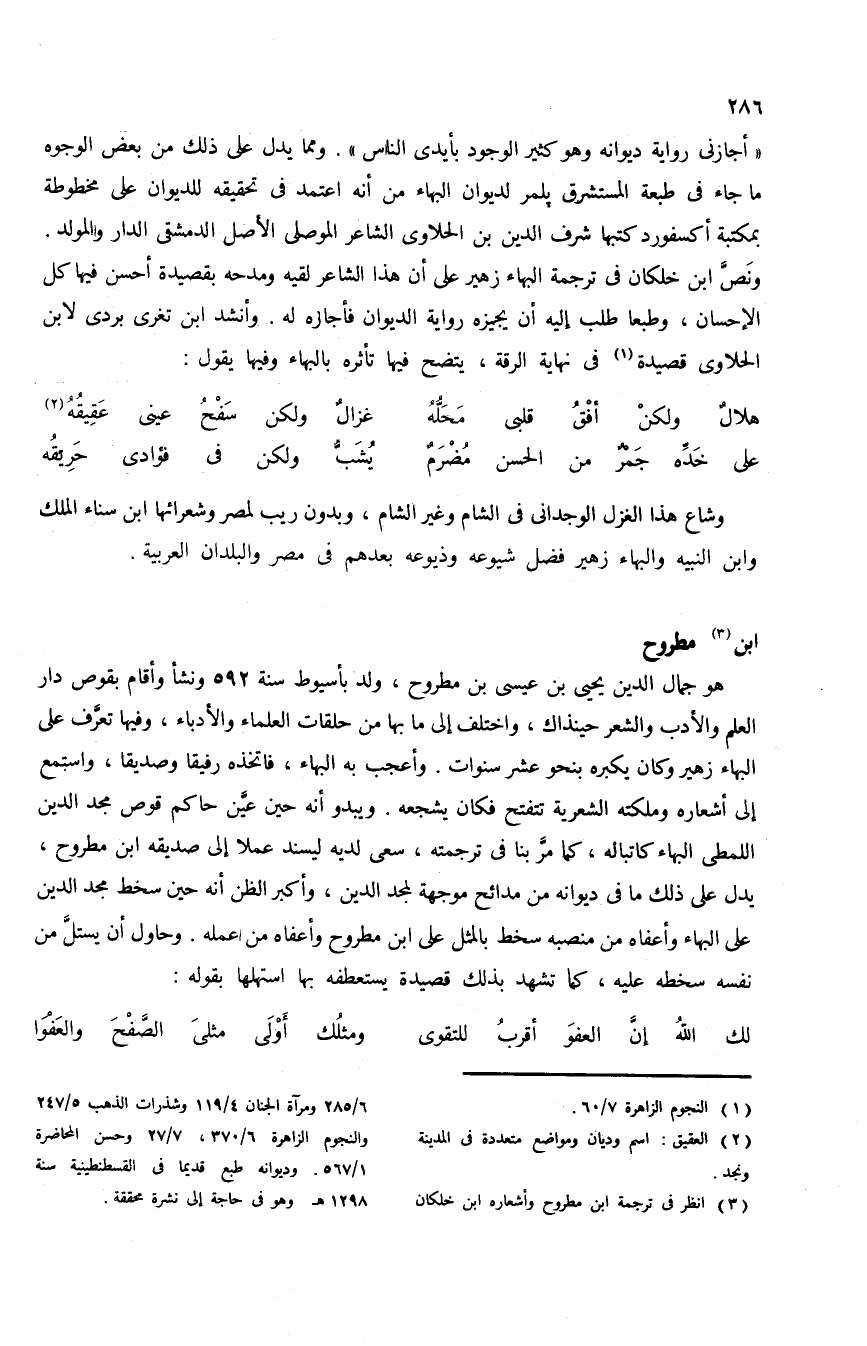 ٢٨٦
« أجازنى رواية ديوانه وهو كثير الوجود بأيدى الناس » . ومما يدل على ذلك من بعض الوجوه
ما جاء فى طبعة المستشرق پلمر لديوان البهاء من أنه اعتمد فى تحقيقه للديوان على مخطوطة
بمكتبة أكسفورد كتبها شرف الدين بن الحلاوى الشاعر الموصلى الأصل الدمشقى الدار والمولد .
ونَصَّ ابن خلكان فى ترجمة البهاء زهير على أن هذا الشاعر لقيه ومدحه بقصيدة أحسن فيها كل
الإحسان ، وطبعا طلب إليه أن يجيزه رواية الديوان فأجازه له . وأنشد ابن تغرى بردى لابن
الحلاوى قصيدة(١) فى نهاية الرقة ، يتضح فيها تأثره بالبهاء وفيها يقول :
هلالٌ ولكنْ أفْقُ قلبى مَحَلُّهُ غزالٌ ولكن سَفْحُ عينى عَقِيقُهُ(٢)
على خَدِّه جَمْرٌ من الحسن مُضْرَمٌ يُشَبُّ ولكن فى فؤادى حَرِيقُه
وشاع هذا الغزل الوجدانى فى الشام وغير الشام ، وبدون ريب لمصر وشعرائها ابن سناء الملك
وابن النبيه والبهاء زهير فضل شيوعه وذيوعه بعدهم فى مصر والبلدان العربية .
ابن(٣) مطروح
هو جمال الدين يحيى بن عيسى بن مطروح ، ولد بأسيوط سنة ٥٩٢ ونشأ وأقام بقوص دار
العلم والأدب والشعر حينذاك ، واختلف إلى ما بها من حلقات العلماء والأدباء ، وفيها تعرَّف على
البهاء زهير وكان يكبره بنحو عشر سنوات . وأعجب به البهاء ، فاتخذه رفيقا وصديقا ، واستمع
إلى أشعاره وملكته الشعرية تتفتح فكان يشجعه . ويبدو أنه حين عيَّن حاكم قوص مجد الدين
اللمطى البهاء كاتباله ، كما مرَّ بنا فى ترجمته ، سعى لديه ليسند عملا إلى صديقه ابن مطروح ،
يدل على ذلك ما فى ديوانه من مدائح موجهة لمجد الدين ، وأكبر الظن أنه حين سخط مجد الدين
على البهاء وأعفاه من منصبه سخط بالمثل على ابن مطروح وأعفاه من عمله . وحاول أن يستلَّ من
نفسه سخطه عليه ، كما تشهد بذلك قصيدة يستعطفه بها استهلها بقوله :
لك اللهُ إنَّ العفوَ أقربُ للتقوى ومثلُك أَوْلَى مثلىَ الصَّفْحَ والعَفْوَا
(١) النجوم الزاهرة ٦٠/٧ .
(٢) العقيق : اسم وديان ومواضع متعددة فى المدينة
ونجد .
(٣) انظر فى ترجمة ابن مطروح وأشعاره ابن خلكان
٢٨٥/٦ ومرآة الجنان ١١٩/٤ وشذرات الذهب ٢٤٧/٥
والنجوم الزاهرة ٣٧٠/٦ ، ٢٧/٧ وحسن المحاضرة
٥٦٧/١ . وديوانه طبع قديما فى القسطنطينية سنة
١٢٩٨ هـ وهو فى حاجة إلى نشرة محققة .